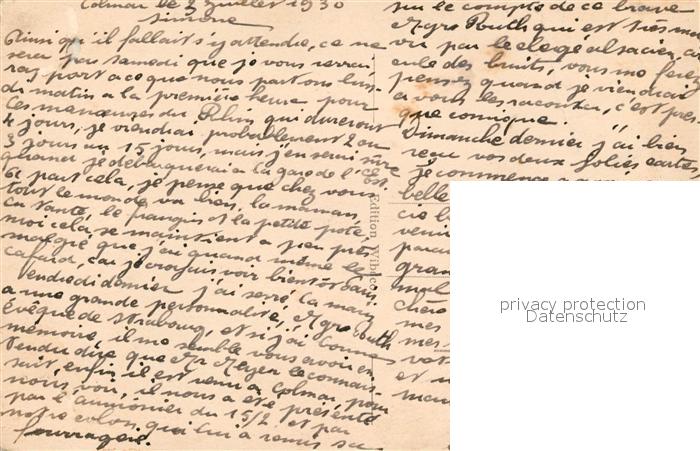 Colmar le 3 Juillet 1930
Simone
Ainsi qu'il fallait s'y attendre, ce ne
sera pas Samedi que je vous verrai,
rapport a ce que nous partons lun-
di matin a la première heure pour
les manoeuvres du Rhin qui dureront
4 jours, je viendrai probablement 2 ou
3 jours au 15 jours, mais j'en serai sûre
quand je débarquerai a la gare de l'est.
A part cela, je pense que chez vous
tout le monde va bien, la maman,
la tante, le français et la petite pote,
moi cela se maintient a peu près
malgré que j'ai quand même le
cafard, car je croyais voir bientôt
Vendredi dernier j'ai serré la main
a une grande personnalité, Mgre Ruth
évêque de Strasbourg, et si j'ai bonne
mémoire, il me semble vous avoir en-
tendu dire que Mr Meyer le connais-
sait, enfin il est venu a Colmar, pour
nous voir, il nous a été présenté
par l'aumonier du 15/2 et par
notre colon, qui lui a remis sa
fourragère.
sur le compte de ce brave
Mgre Routh qui est très mal
vu par le clergé alsacien, il
cule des bruits, vous me ferez
penser quand je viendrai
a vous les raconter, c'est pres-
que comique.
Dimanche dernier j'ai bien
reçu vos deux jolies cartes,
je commence a
belle
cie
veni
parce
gran
mal
chère
mes
mes
vot
et
man
Edition Wibois
privacy protection
Datenschutz